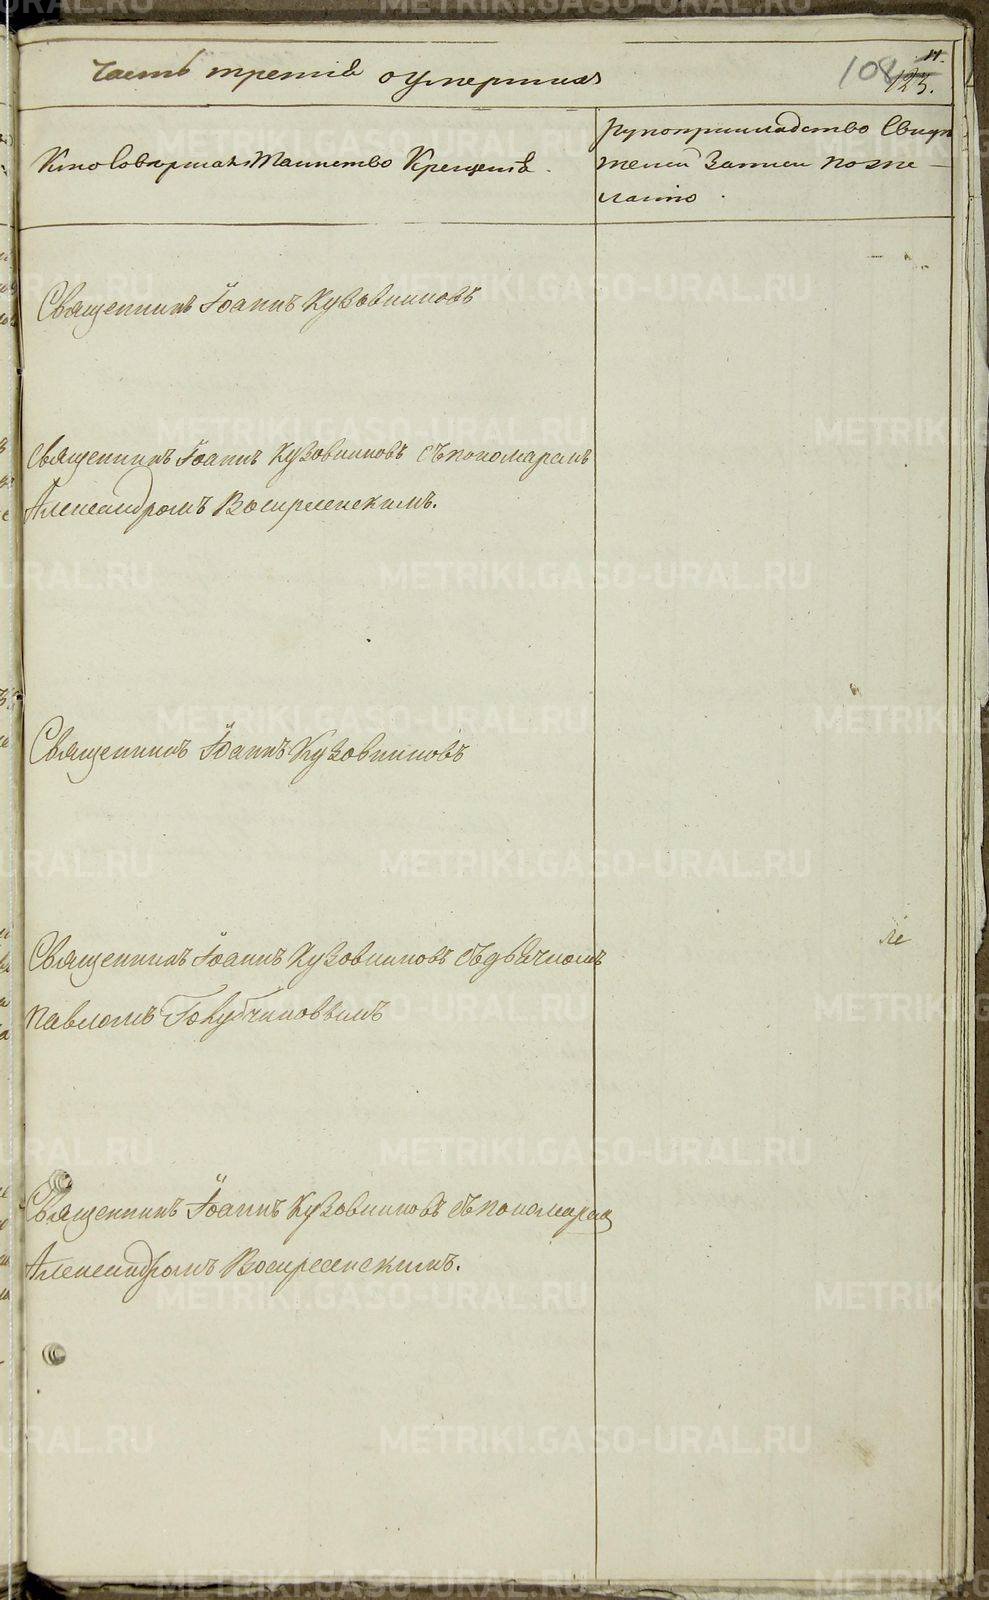 Часть третія о умершихъ
108
11.
123.
Кто Совершалъ Таинство Крещенія.
Рукоприкладство Свидѣ
телей Записи по же-
ланію.
Священникъ Іоаннъ Кузовниковъ
Священникъ Іоаннъ Кузовниковъ съ пономаремъ
Александромъ Воскресенскимъ.
Священникъ Іоаннъ Кузовниковъ
Священникъ Іоаннъ Кузовниковъ съ дьячкомъ
Павломъ Голубчиковымъ
Священникъ Іоаннъ Кузовниковъ съ пономаремъ
Александромъ Воскресенскимъ.
METRIKI.GASO-URAL.RU